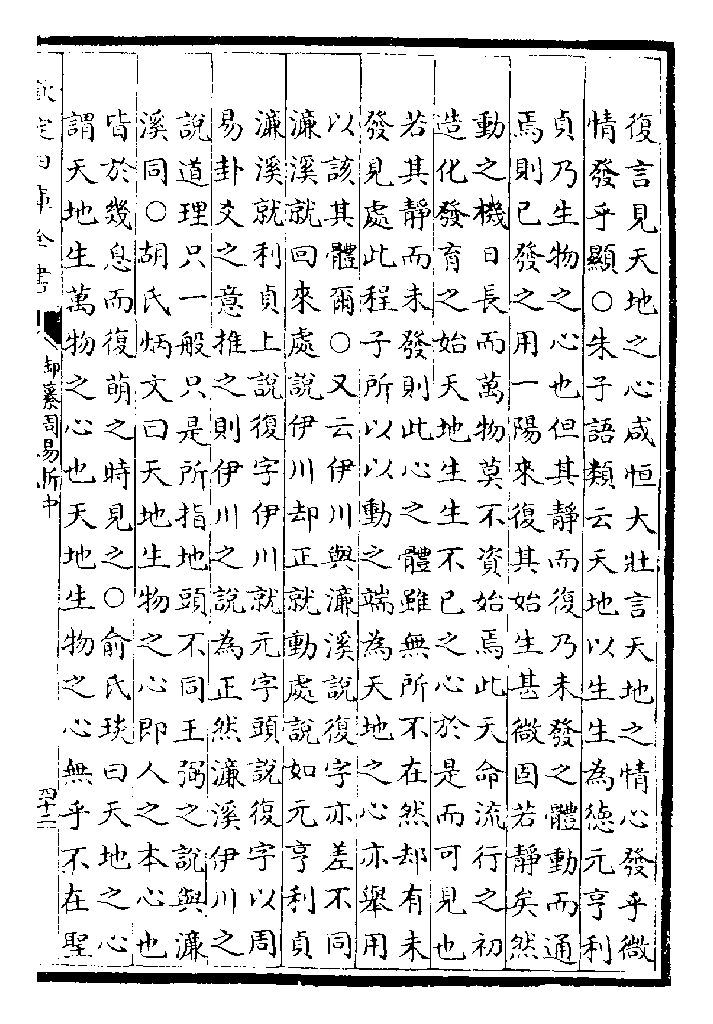 復言見天地之心咸恒大壯言天地之情心發乎微
情發乎顯○朱子語類云天地以生生為德元亨利
貞乃生物之心也但其靜而復乃未發之體動而通
焉則已發之用一陽來復其始生甚微固若靜矣然
動之機日長而萬物莫不資始焉此天命流行之初
造化發育之始天地生生不已之心於是而可見也
若其靜而未發則此心之體雖無所不在然却有未
發見處此程子所以以動之端為天地之心亦舉用
以該其體爾○又云伊川與濂溪說復字亦差不同
濂溪就回來處說伊川却正就動處說如元亨利貞
濂溪就利貞上說復字伊川就元字頭說復字以周
易卦爻之意推之則伊川之說為正然濂溪伊川之
說道理只一般只是所指地頭不同王弼之說與濂
溪同○胡氏炳文曰天地生物之心即人之本心也
皆於幾息而復萌之時見之○俞氏琰曰天地之心
謂天地生萬物之心也天地生物之心無乎不在聖
欽定四庫全書
御纂周易折中
四十二